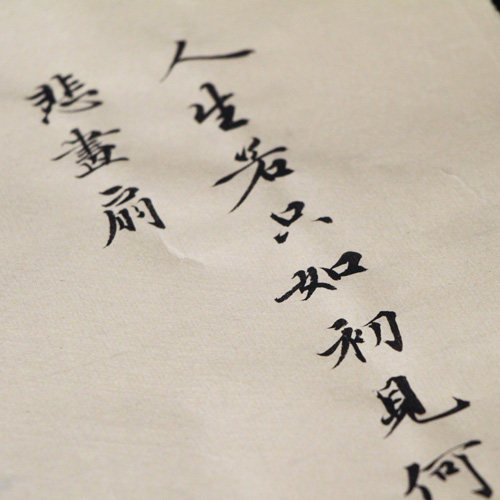 人生若只如初見何
悲畫扇